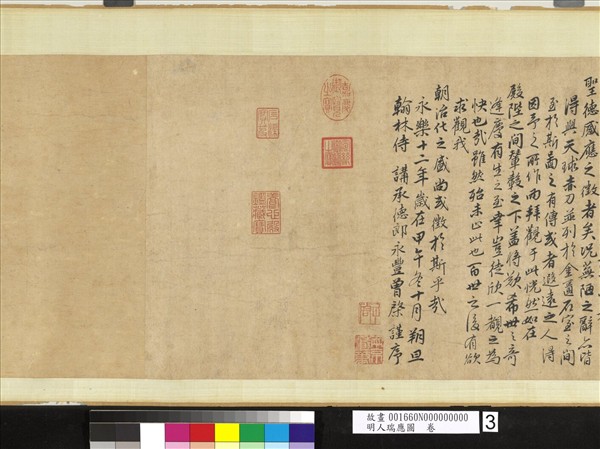 聖德感應之徵者矣况蕪陋之辭亦皆
得與天球赤刀並列於金匱石室之間
至於斯圖之有傳或者遐遠之人得
因予之所作而拜觀于此恍然如在
殿陛之間輦轂之下蓋歎希世之奇
逢慶有生之至幸豈徒欣一觀之為
快也哉雖然殆未止此也百世之後有欲
求觀我
朝治化之盛尚或徵於斯乎哉
永樂十二年歲在甲午冬十月朔旦
翰林侍講承德郎永豐曾棨謹序
故畫 001660N000000000
明人瑞應圖 卷
3